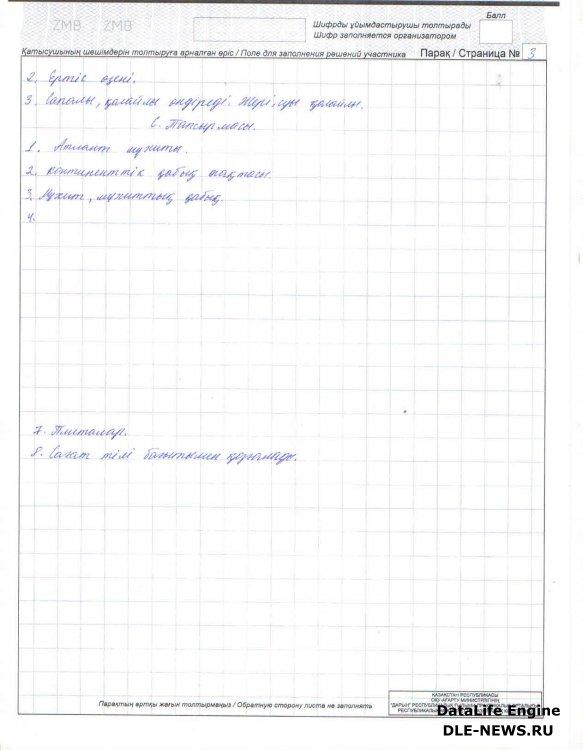 ZMB ZMB
Балл
Шифрды ұйымдастырушы толтырады
Шифр заполняется организатором
Қатысушының шешімдерін толтыруға арналған өріс / Поле для заполнения решений участника Парақ / Страница № 3
2. Ертіс өзені.
3. Сапалы, қолайлы өндіреді. Жері, суы қолайлы.
С. Тапсырмасы.
1. Атлант мұхиты.
2. Континенттік қабық тақтасы.
3. Мұхит, мұхиттық қабық.
4.
7. Плиталар.
8. Сағат тілі бағытымен қозғалады.
Парақтың артқы жағын толтырмаңыз / Обратную сторону листа не заполнять
ҚАЗАҚСТАН РЕСПУБЛИКАСЫ
ОҚУ-АҒАРТУ МИНИСТРЛІГІНІҢ
DataLife Engine
DLE-NEWS.RU